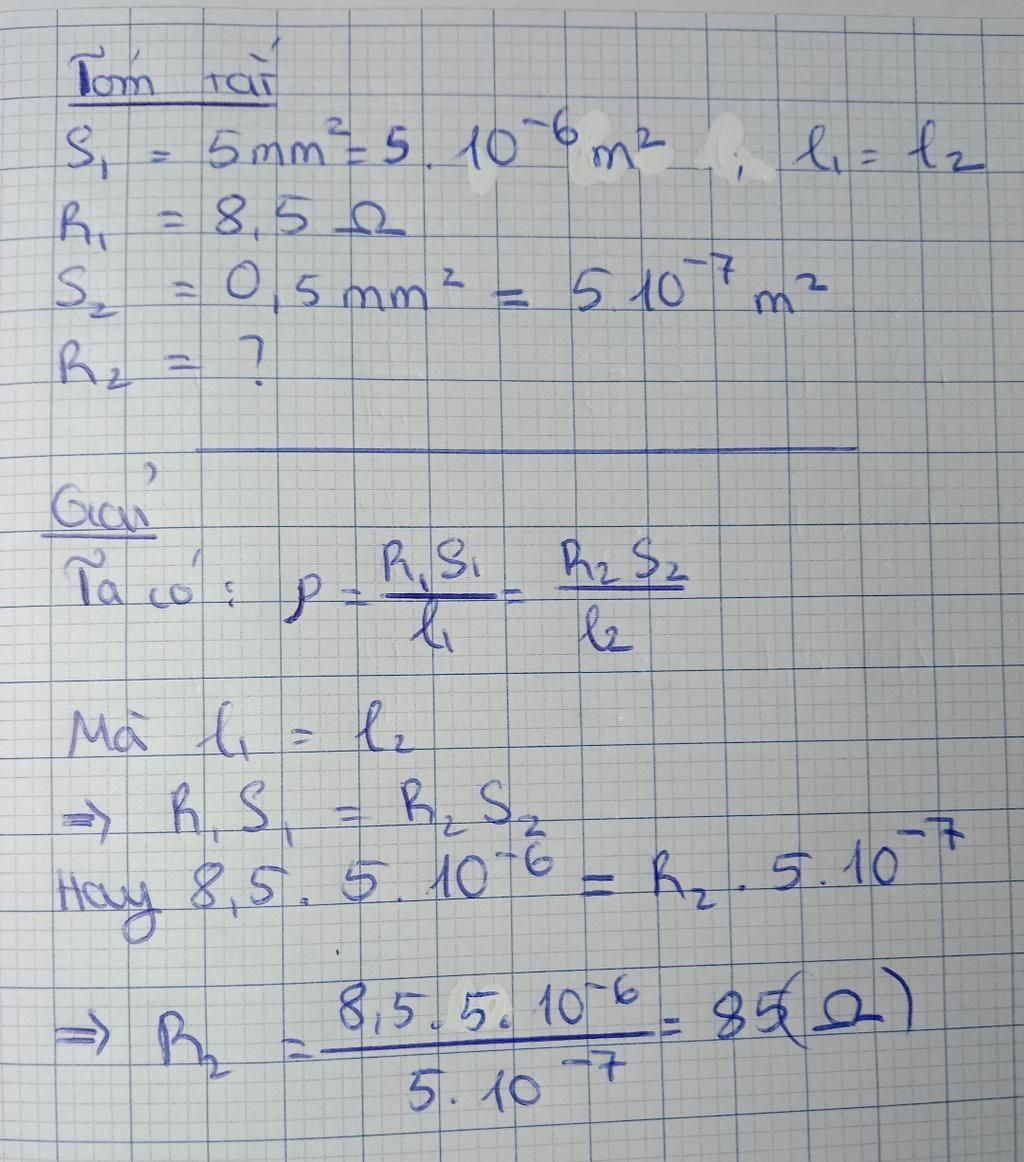 Tóm tắt
S₁ = 5mm² = 5 . 10⁻⁶ m² ; l₁ = l₂
R₁ = 8,5 Ω
S₂ = 0,5 mm² = 5 10⁻⁷ m²
R₂ = ?
Giải
Ta có : ρ = R₁S₁/l₁ = R₂S₂/l₂
Mà l₁ = l₂
⇒ R₁S₁ = R₂S₂
Hay 8,5 . 5 . 10⁻⁶ = R₂ . 5 . 10⁻⁷
⇒ R₂ = 8,5 . 5 . 10⁻⁶/5 . 10⁻⁷ = 85(Ω)